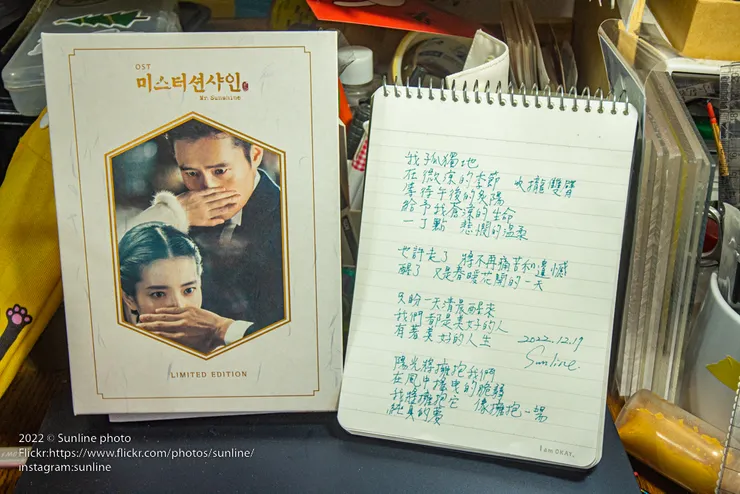 OST
미스터션샤인
Mr. Sunshine
LIMITED EDITION
我孤獨地
在微涼的季節 收攏雙臂
等待午後的炙陽
給予我蒼涼的生命
一丁點 悲憫的溫柔
也許走了 將不再痛苦和遺憾
醒了 又是春暖花開的一天
久盼一天清晨醒來
我們都是美好的人
有著美好的人生
2022.12.19
Sunline
陽光將擁抱我們
在風中搖曳的脆弱
我將擁抱它 像擁抱一場
純真的夢
I am OKAY.
2022 © Sunline photo
Flickr:https://www.flickr.com/photos/sunline/
instagram:sunline